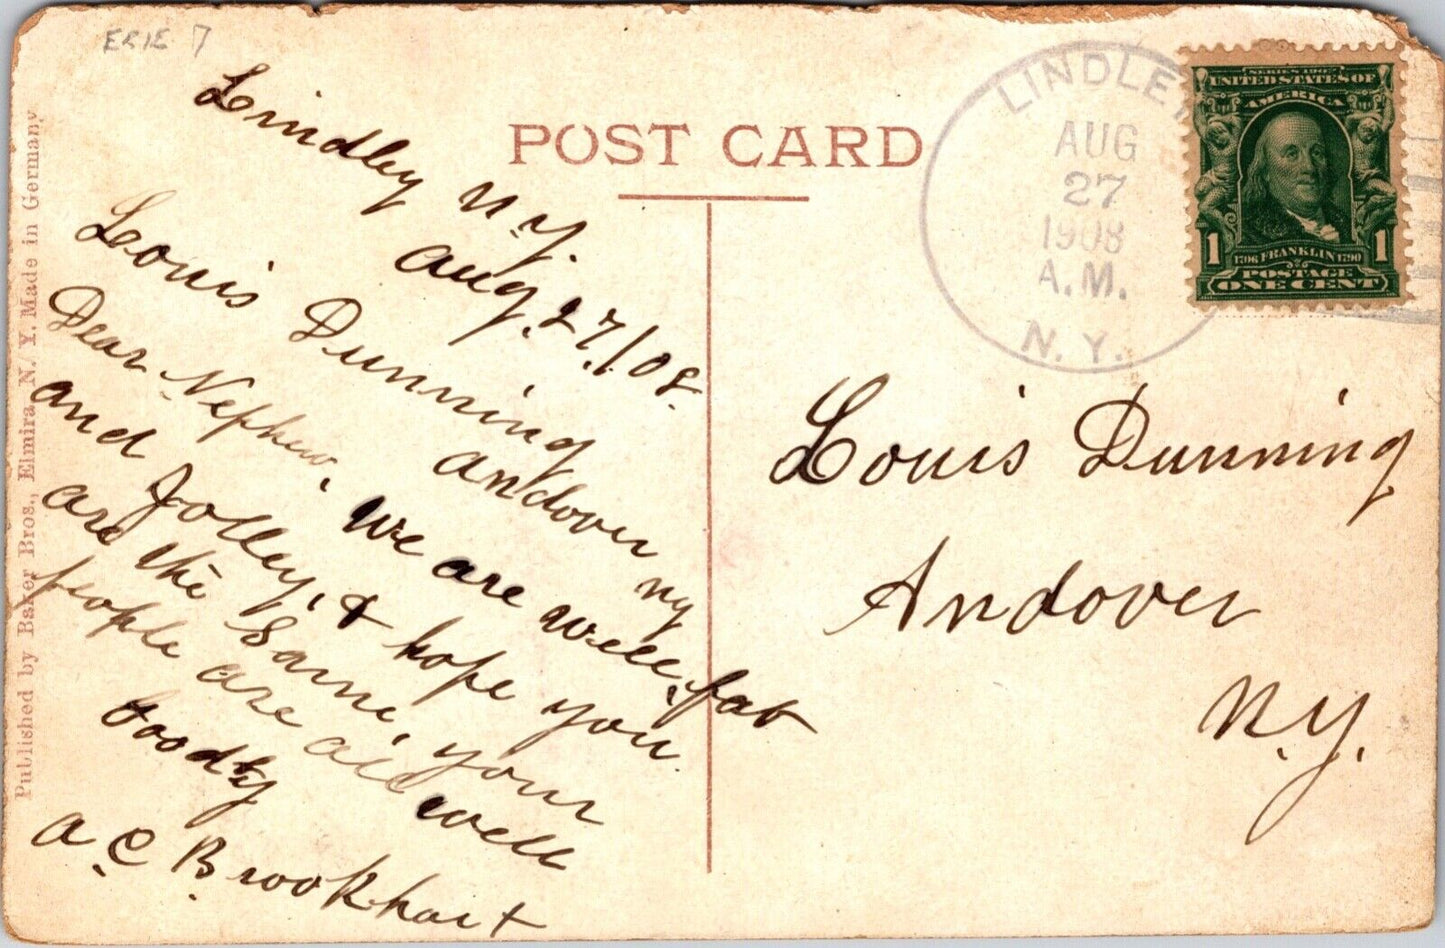 ERIE 7
Lindley N Y.
Aug. 27./08.
Louis Dunning
Andover NY
Dear Nephew, We are well, fat
and Jolley, & hope you
are the Same, your
people are all well
A. C. Brookhart
POST CARD
LINDLEY
AUG
27
1908
A.M.
N. Y.
SERIES 1902
UNITED STATES OF
AMERICA
1706 FRANKLIN 1790
1 1
POSTAGE
ONE CENT
Louis Dunning
Andover
N.Y.
Published by Baker Bros., Elmira, N. Y. Made in Germany